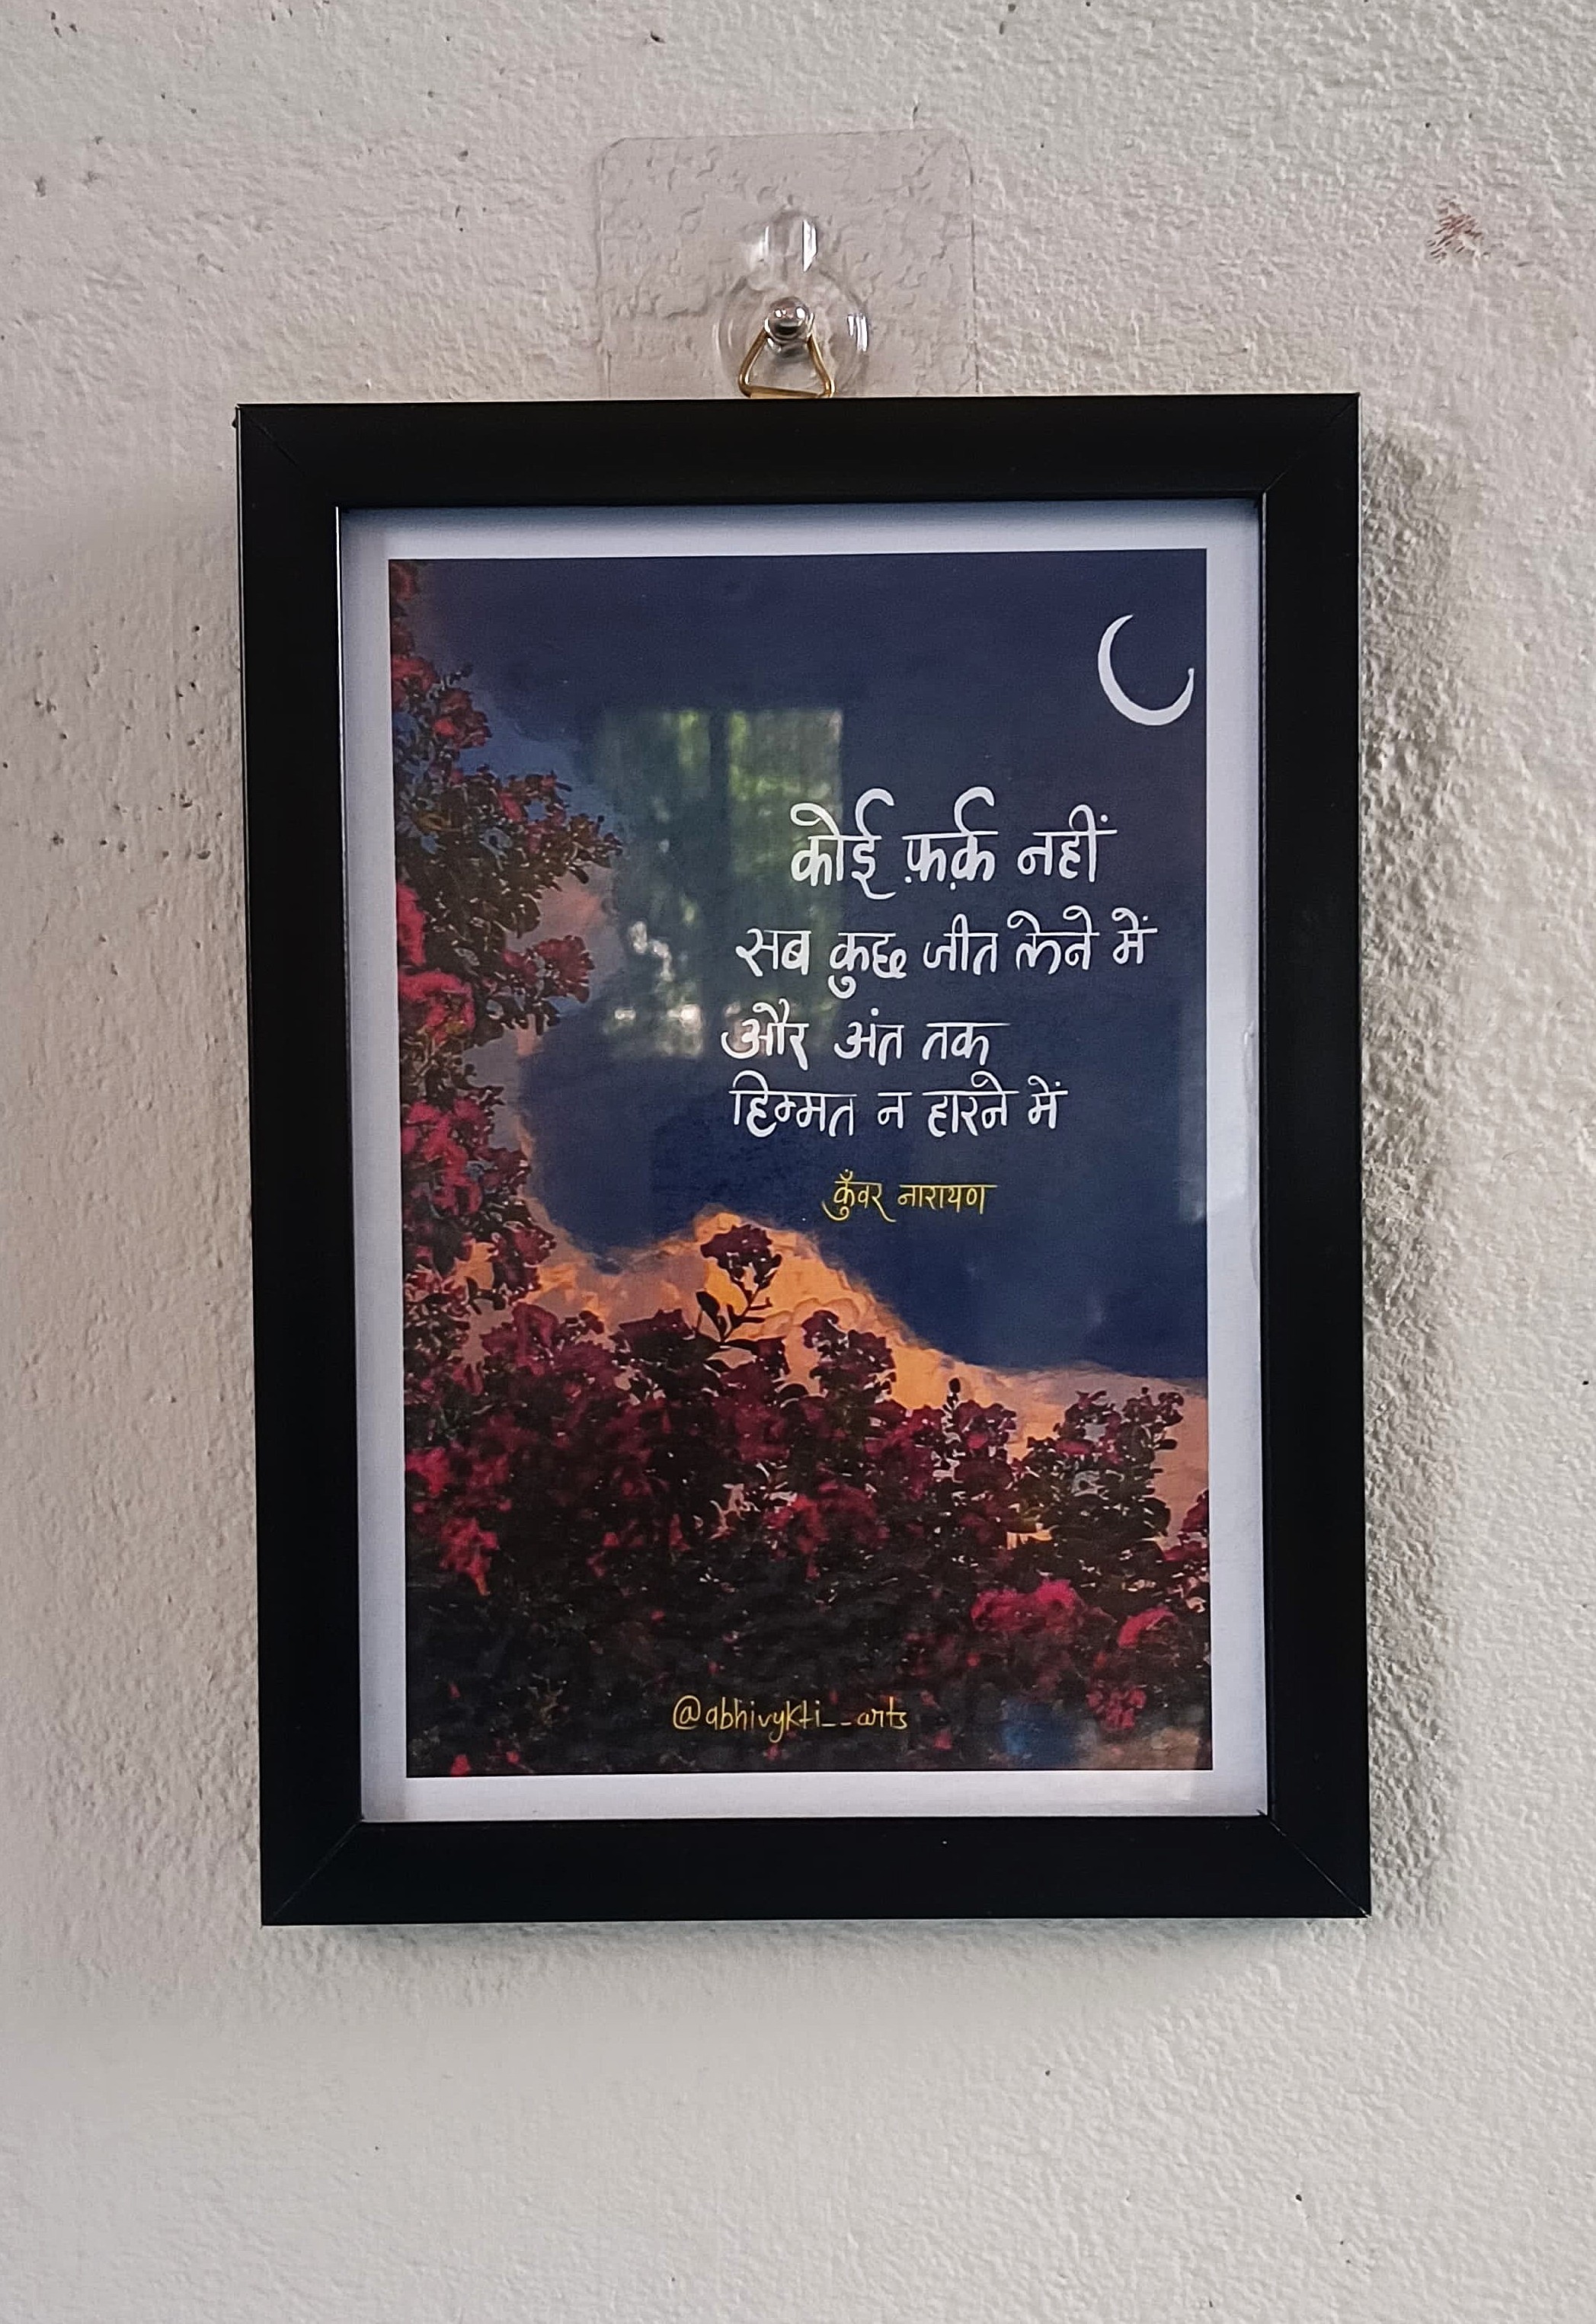 कोई फ़र्क़ नहीं
सब कुछ जीत लेने में
और अंत तक
हिम्मत न हारने में
कुँवर नारायण
@abhivykti__arts